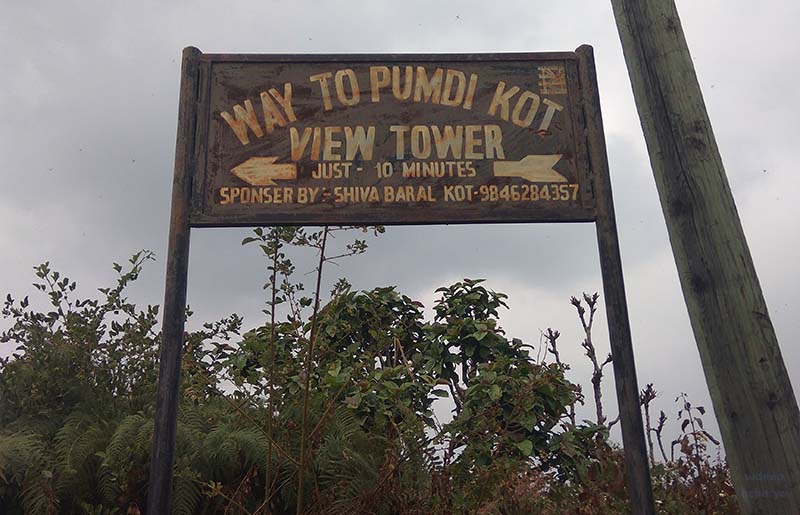 WAY TO PUMDI KOT
VIEW TOWER
JUST - 10 MINUTES
SPONSER BY:- SHIVA BARAL KOT-9846284357